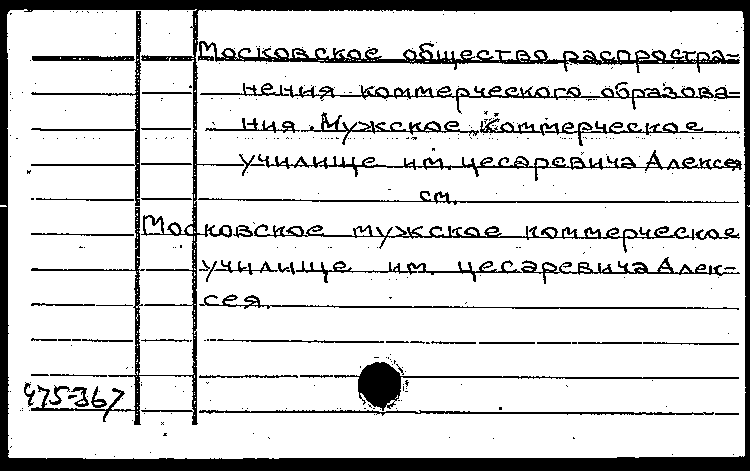 Московское общество распростра-
нения коммерческого образова-
ния. Мужское коммерческое
училище им. цесаревича Алексея
см.
Московское мужское коммерческое
училище им. цесаревича Алек-
сея.
475-367